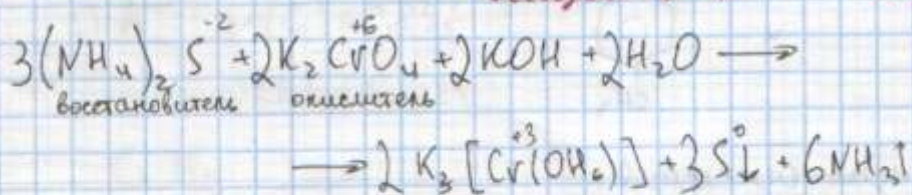 3(NH₄)₂S⁻² + 2K₂Cr⁺⁶O₄ + 2KOH + 2H₂O ⟶
восстановитель окислитель
⟶ 2K₃[Cr⁺³(OH₆)] + 3S⁰↓ + 6NH₃↑